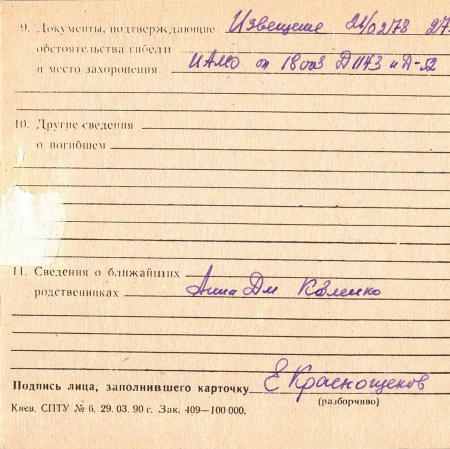 9. Документы, подтверждающие Извещение 21/02/78
обстоятельства гибели
и место захоронения ЦАМО оп 18003 Д 1143 и Д-52
10. Другие сведения
о погибшем
11. Сведения о ближайших
родственниках Анна Дм
Подпись лица, заполнившего карточку Е Краснощеков
(разборчиво)
Киев. СПТУ № 6. 29. 03. 90 г. Зак. 409—100 000.